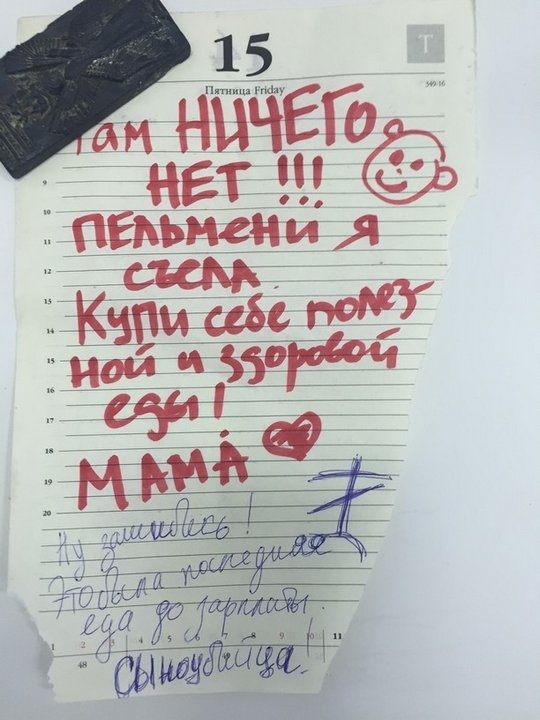 15
T
Пятница Friday
349-16
Там НИЧЕГО
НЕТ !!!
9
10
ПЕЛЬМЕНИ Я
11
СЪЕЛА
12
13
Купи себе полез-
14
ной и здоровой
15
16
еды!
17
18
МАМА
19
20
Ну зашибись!
Это была последняя
еда до зарплаты.
1 2 3 4 5 6 7 8 9 10 11
48
Сыноубийца!